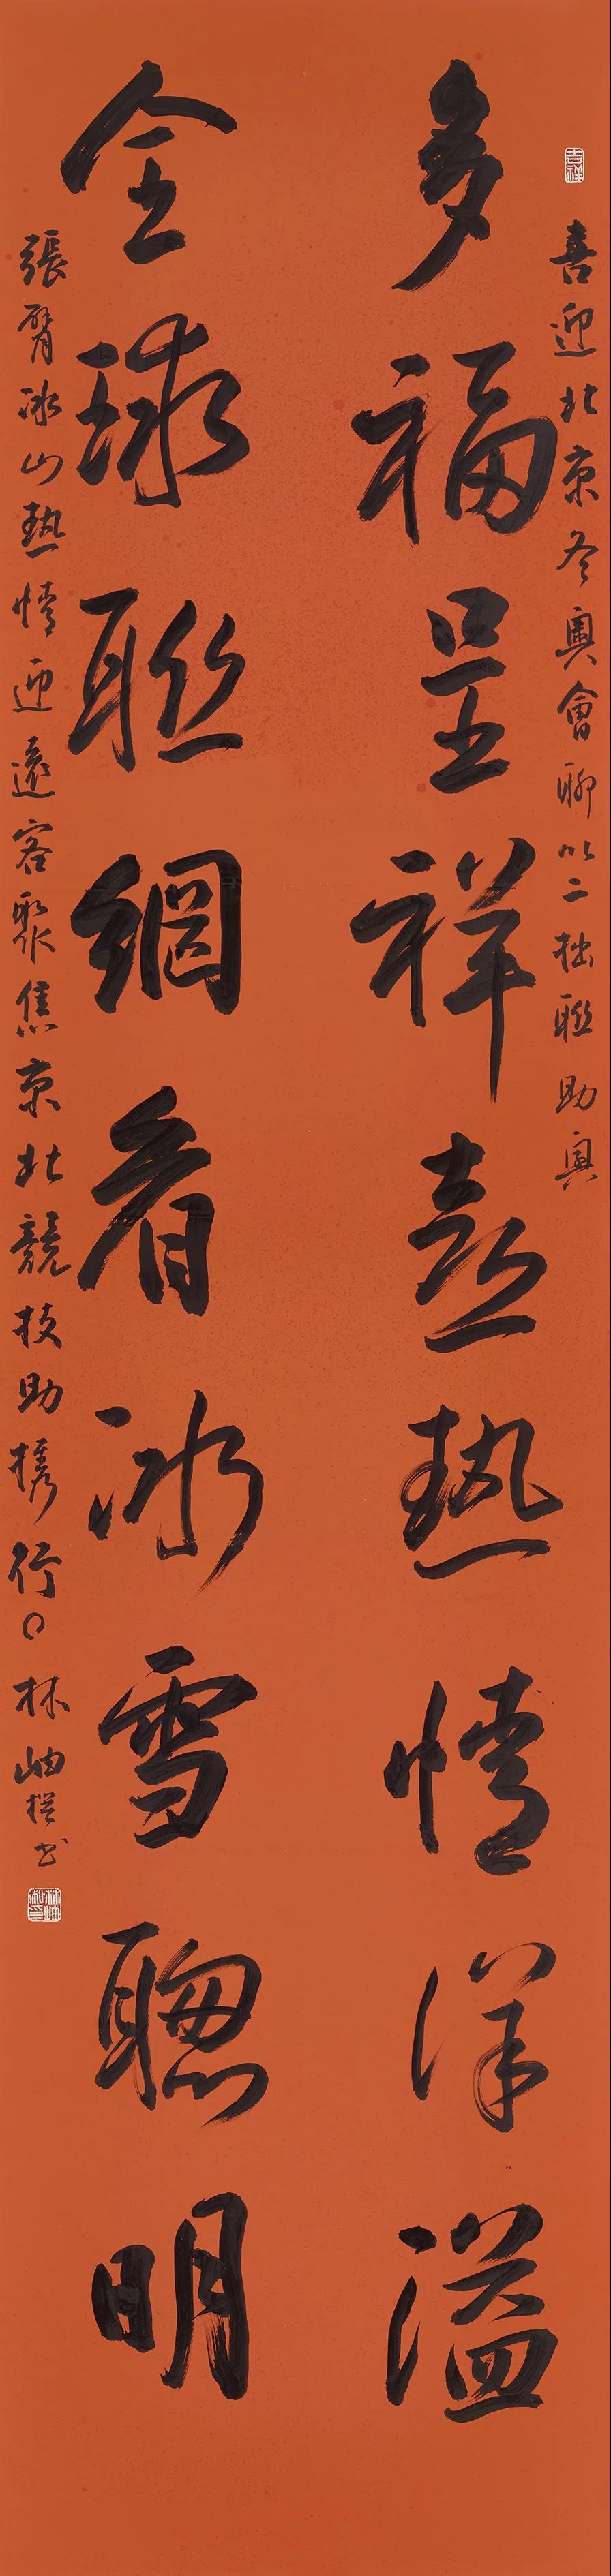 吉祥
喜迎北京冬奧會聊以二拙聯助興
多福呈祥喜熱情洋溢
全球聯網看冰雪聰明
張臂冰山熱情迎遠客聚焦京北競技助攜行〇林岫撰书